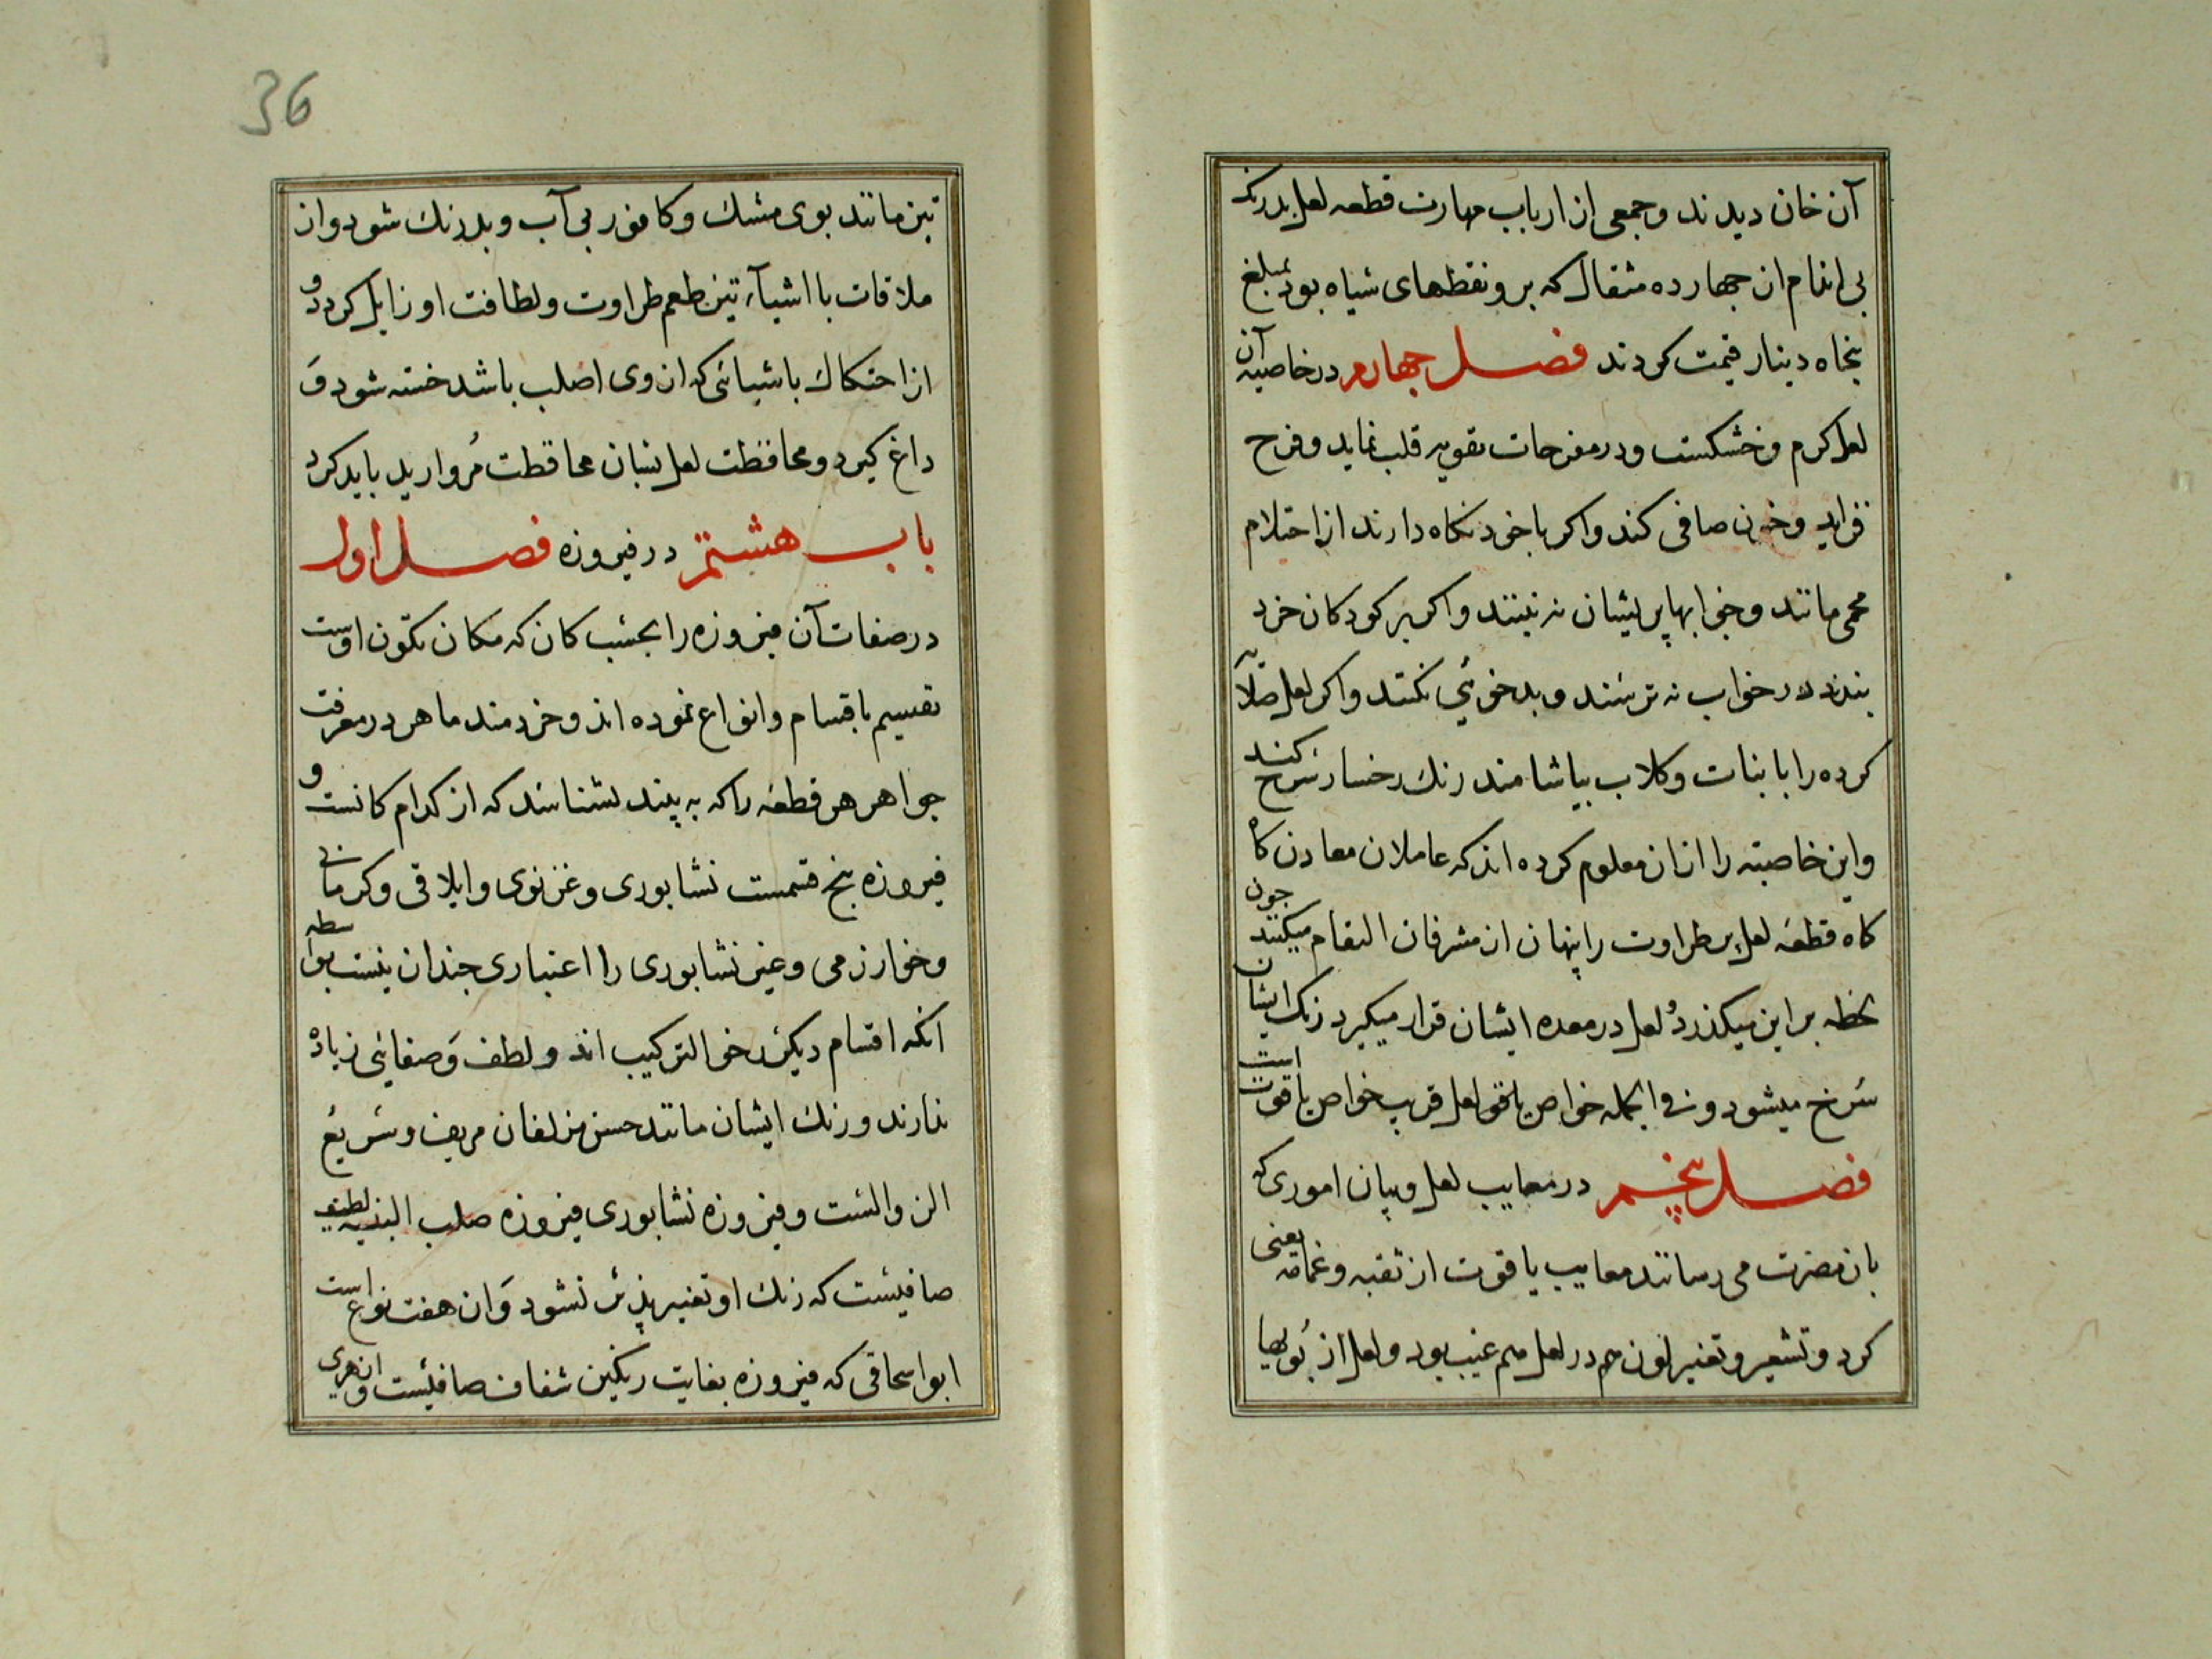 آن خان دیدند وجمعی از ارباب مهارت قطعه لعل بدرنک
بی اندام از جهارده مثقال که برو نقطهای سیاه بود بمبلغ
پنجاه دینار قیمت کردند فصل جهارم در خاصیه آن
لعل کرم وخشکست ودر مفرحات تقویه قلب نماید وفرح
فزاید وخون صافی کند واکر با خود نکاه دارند از احتلام
محمی مانند وخوابها پریشان نه بینند واکر بر کودکان خرد
بندند در خواب نه ترسند وبدخوئی نکنند واکر لعل صلایه
کرده را با نبات وکلاب بیاشامند رنک رخسار سرخ کند
واین خاصیته را ازان معلوم کرده اند که عاملان معادن کاه
کاه قطعه لعل پر طراوت را پنهان از مشرفان التقام میکنند جون
لحظه براین میکذرد لعل در معده ایشان قرار میکیرد رنک ایشان
سرخ میشود وفی الجمله خواص باقی لعل قریب خواص یاقوت است
فصل پنجم در معایب لعل وبیان اموری که
بان مضرت می رسانند معایب یاقوت از ثقبه وغمامه یعنی
کرد وتشعیر وتغییر لون هم در لعل هم عیب بود ولعل از بویها
36
تیز مانند بوی مشک وکافور بی آب وبدرنک شود واز
ملاقات با اشیآء تیز طعم طراوت ولطافت او زایل کردد و
از احتکاک باشیائی که از وی اصلب باشد خسته شود وَ
داغ کیرد ومحافظت لعل بسان محافظت مُروارید باید کرد
باب هشتم در فیروزه فصل اول
در صفات آن فیروزه را بحسب کان که مکان تکوّن اوست
تقسیم باقسام وانواع نموده اند وخردمند ماهر در معرفت
جواهر هر قطعه را که به بیند بشناسد که از کدام کانست و
فیروزه پنج قسمست نشابوری وغزنوی وایلاقی وکرمانی
وخوارزمی وغیر نشابوری را اعتباری جندان نیست بواسطه
انکه اقسام دیکر رخو الترکیب اند ولطف وَصفائی زیاده
ندارند ورنک ایشان مانند حسن مزلفان مریف وسَریعُ
الزوالست وفیروزه نشابوری فیروزه صلب البنیه لطیف
صافیست که رنک او تغییر پذیر نشود وَان هفت نوع است
ابو اسحاقی که فیروزه بغایت رنکین شفاف صافیست وازهری